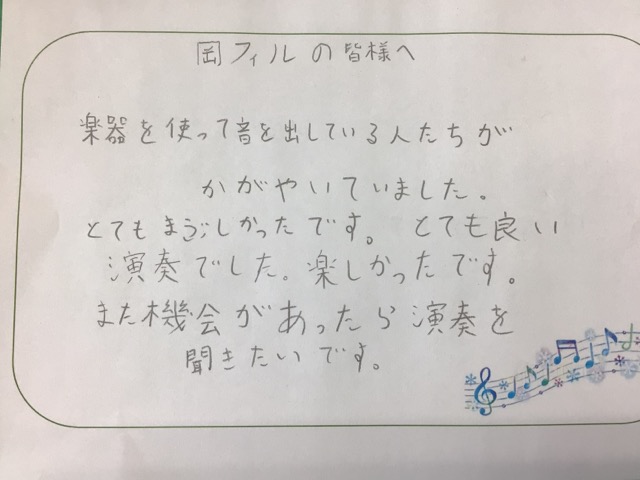 岡フィルの皆様へ
楽器を使って音を出している人たちが
かがやいていました。
とてもまぶしかったです。とても良い
演奏でした。楽しかったです。
また機会があったら演奏を
聞きたいです。